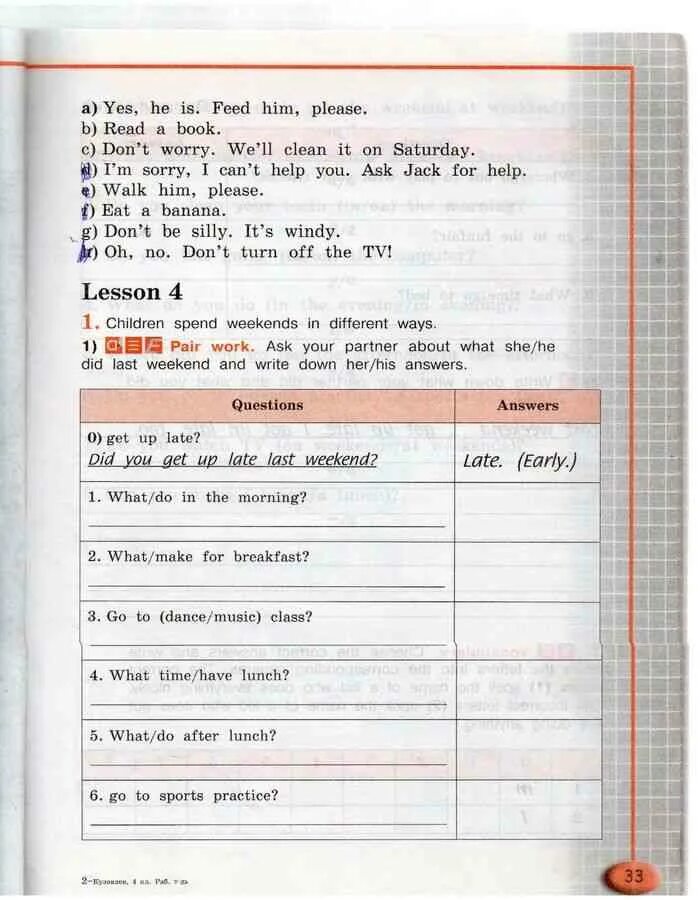 a) Yes, he is. Feed him, please.
b) Read a book.
c) Don't worry. We'll clean it on Saturday.
d) I'm sorry, I can't help you. Ask Jack for help.
e) Walk him, please.
f) Eat a banana.
g) Don't be silly. It's windy.
h) Oh, no. Don't turn off the TV!
Lesson 4
1. Children spend weekends in different ways.
1) Pair work. Ask your partner about what she/he
did last weekend and write down her/his answers.
Questions Answers
0) get up late?
Did you get up late last weekend? Late. (Early.)
1. What/do in the morning?
2. What/make for breakfast?
3. Go to (dance/music) class?
4. What time/have lunch?
5. What/do after lunch?
6. go to sports practice?
2–Кузовлев, 4 кл. Раб. т-дь
33